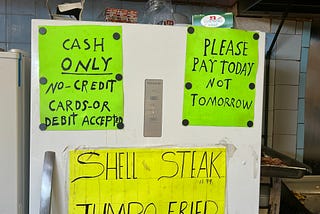 CASH
ONLY
NO-CREDIT
CARDS-OR
DEBIT ACCEPTD
PLEASE
PAY TODAY
NOT
TOMORROW
SHELL STEAK
JUMBO FRIED